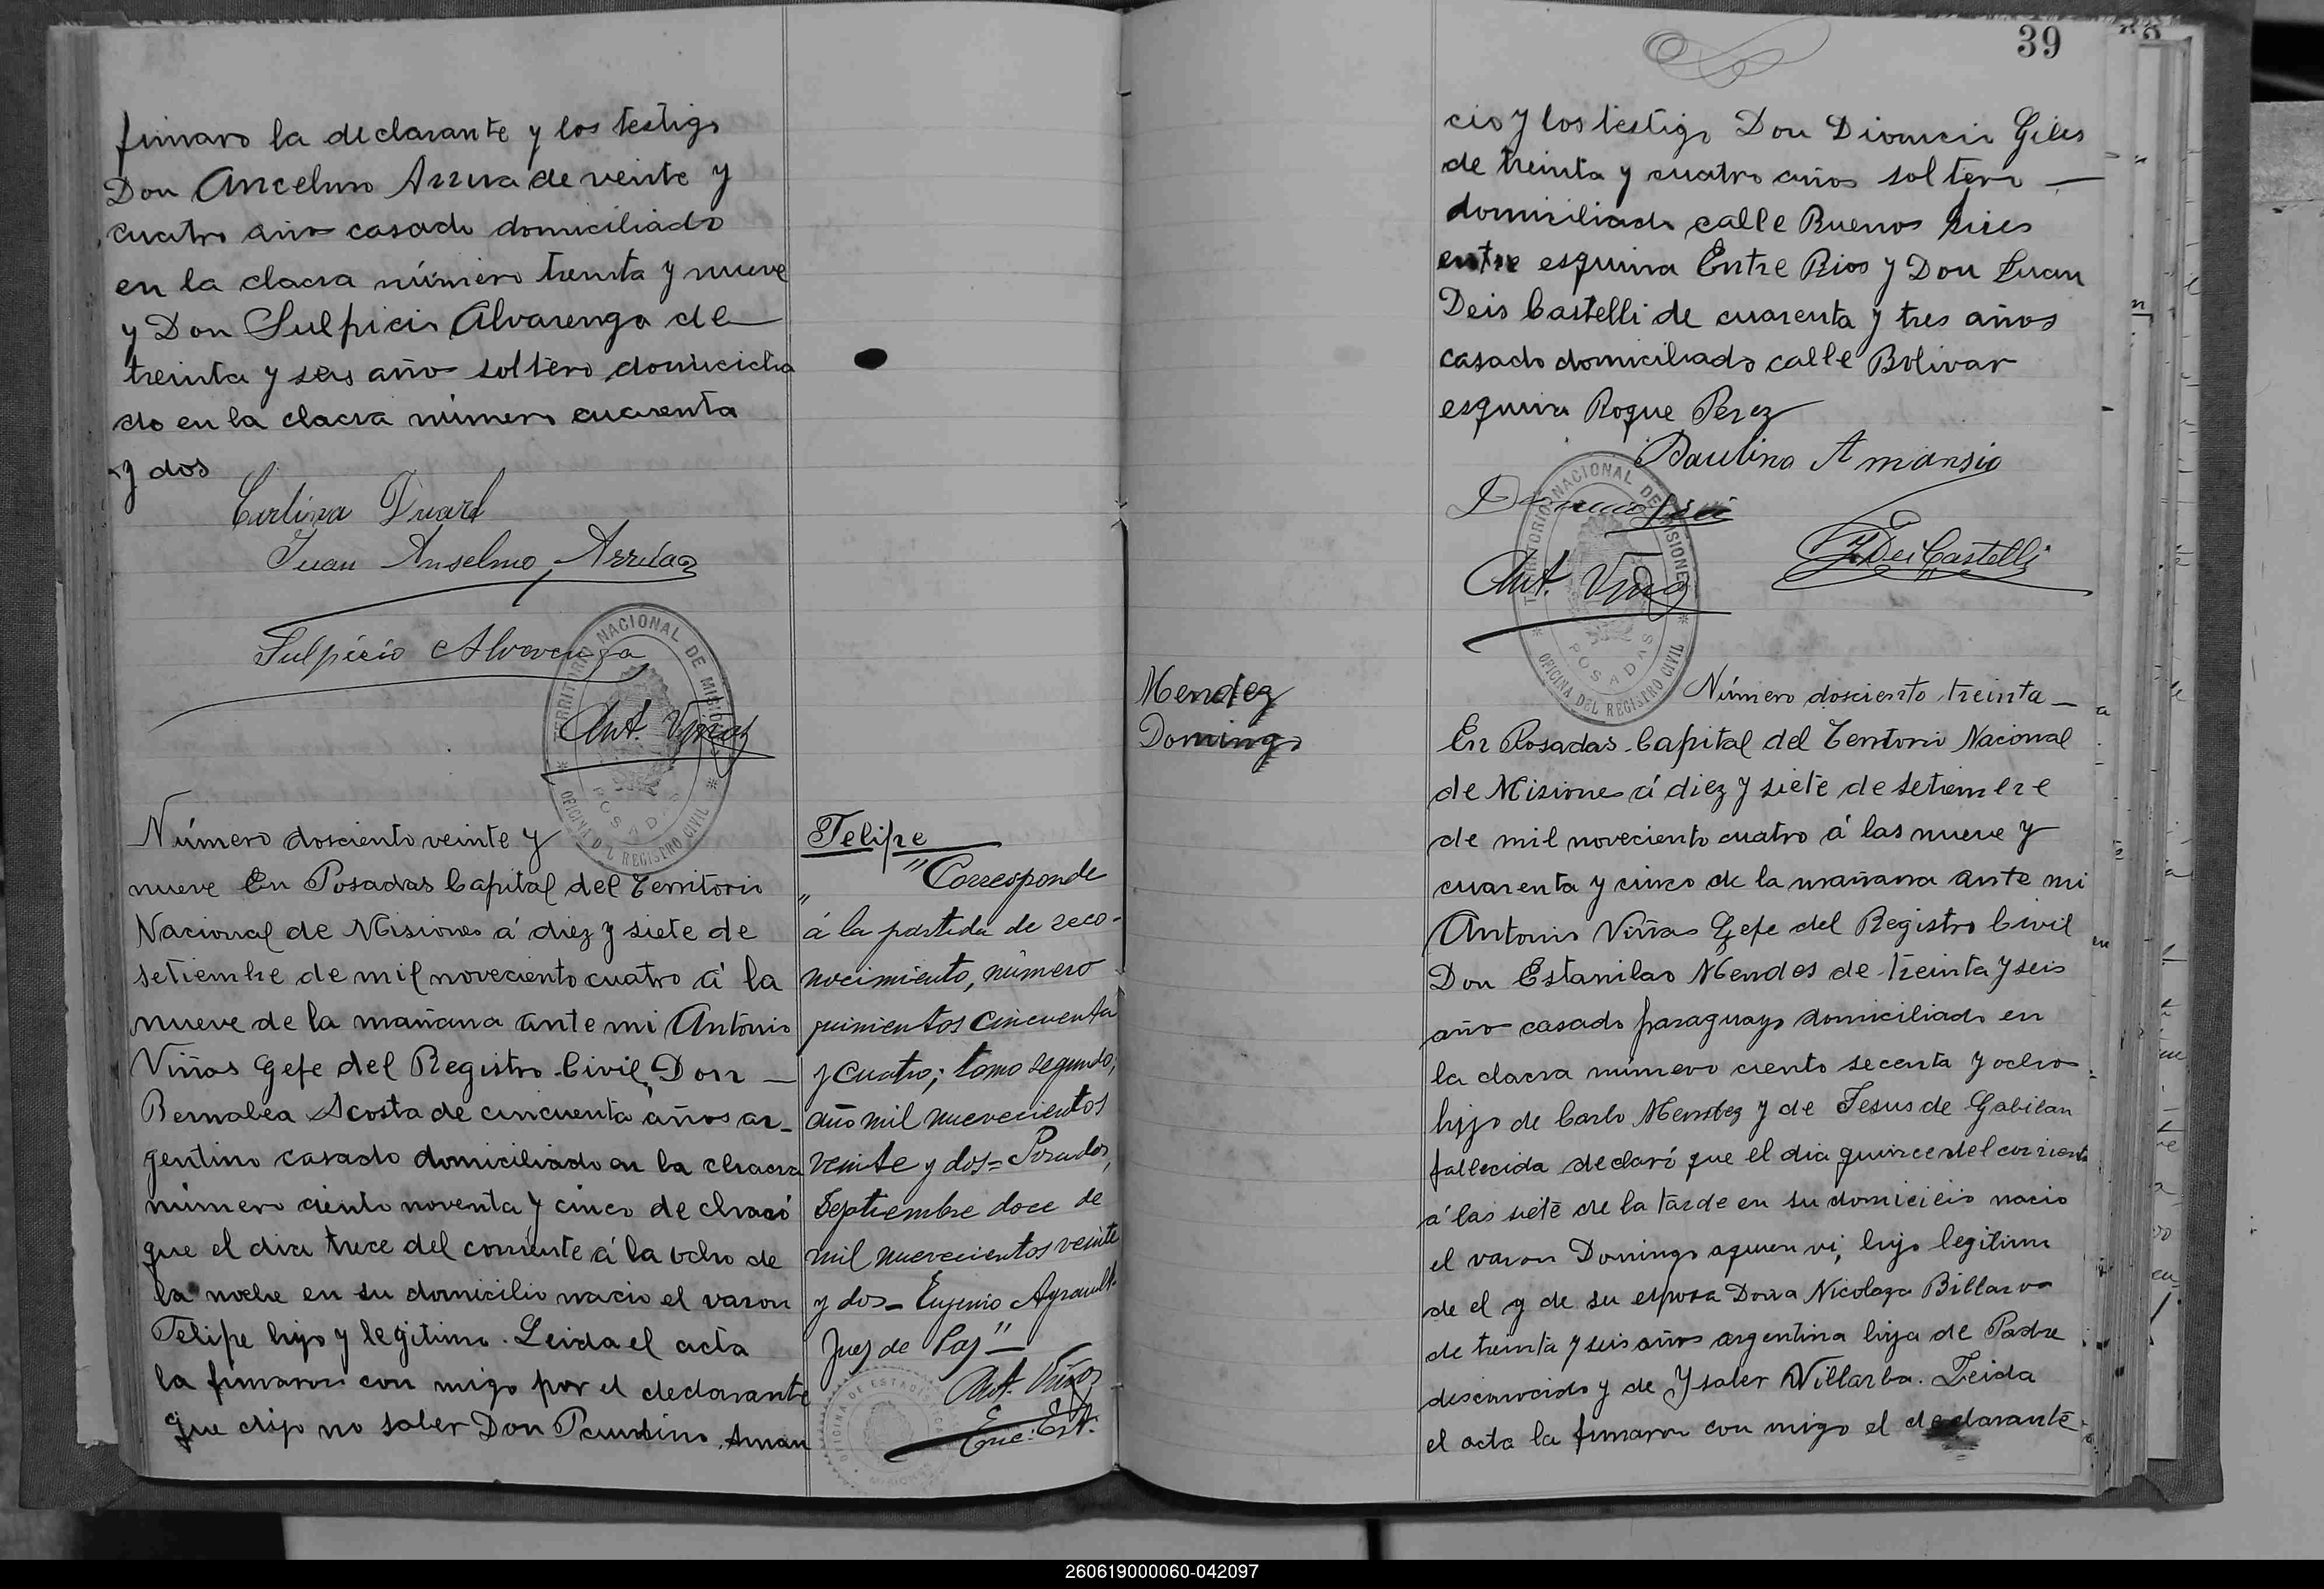 firmaro la declarante y los testigo
Don Ancelmo Arrua de veinte y
cuatro año casado domiciliado
en la clacra número treinta y nueve
y Don Sulpicio Alvarenga de
treinta y seis año soltero domicicilia
do en la clacra número cuarenta
y dos
Carlina Duart
Juan Anselmo Arrúa
Sulpicio Alvarenga
Ant. Viñas
TERRITORIO NACIONAL DE MISIONES
POSADAS
OFICINA DEL REGISTRO CIVIL
Número dosciento veinte y
nueve En Posadas Capital del Territorio
Nacional de Misiones á diez y siete de
setiembre de mil noveciento cuatro á la
nueve de la mañana ante mi Antonio
Viñas Gefe del Registro Civil, Don
Bernabea Acosta de cincuenta años ar_
gentino casado domiciliado en la chacra
número ciento noventa y cinco de claró
que el dia trece del corriente á la ocho de
la noche en su domicilio nacio el varon
Felipe hijo y legitimo. Leida el acta
la firmaron con migo por el declarante
que dijo no saber Don Paulino Aman
Felipe
"Corresponde
á la partida de reco-
nocimiento, número
quinientos cincuenta
y cuatro; tomo segundo,
año mil nuevecientos
veinte y dos= Posadas,
Septiembre doce de
mil nuevecientos veinte
y dos_ Eugenio Ayrault.
Juez de Paz"_
Ant. Viñas
Enc. Est.
OFICINA DE ESTADISTICA
MISIONES
39
cio y los testigo Don Dionicio Giles
de treinta y cuatro años soltero
domiciliado calle Buenos Aires
entre esquina Entre Rios y Don Juan
Deis Castelli de cuarenta y tres años
casado domiciliado calle Bolivar
esquina Roque Perez
Paulino Amansio
J. Dei Castelli
Ant. Viñas
TERRITORIO NACIONAL DE MISIONES
POSADAS
OFICINA DEL REGISTRO CIVIL
Mendez
Domingo
Número dosciento treinta_
En Posadas Capital del Territorio Nacional
de Misiones á diez y siete de setiembre
de mil noveciento cuatro á las nueve y
cuarenta y cinco de la mañana ante mi
Antonio Viñas Gefe del Registro Civil
Don Estanilao Mendes de treinta y seis
año casado paraguayo domiciliado en
la clacra número ciento secenta y ocho
hijo de Carlo Mendez y de Jesus de Gabilan
fallecida declaró que el dia quince del corriente
á las siete de la tarde en su domicicio nacio
el varon Domingo aquien vi, hijo legitimo
de el y de su esposa Dona Nicolaza Billarva
de treinta y seis años argentina hija de Padre
desconocido y de Ysabel Villarba. Leida
el acta la firmaron con migo el declarante
260619000060-042097